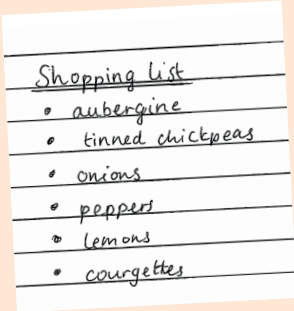 Shopping list
• aubergine
• tinned chickpeas
• onions
• peppers
• lemons
• courgettes